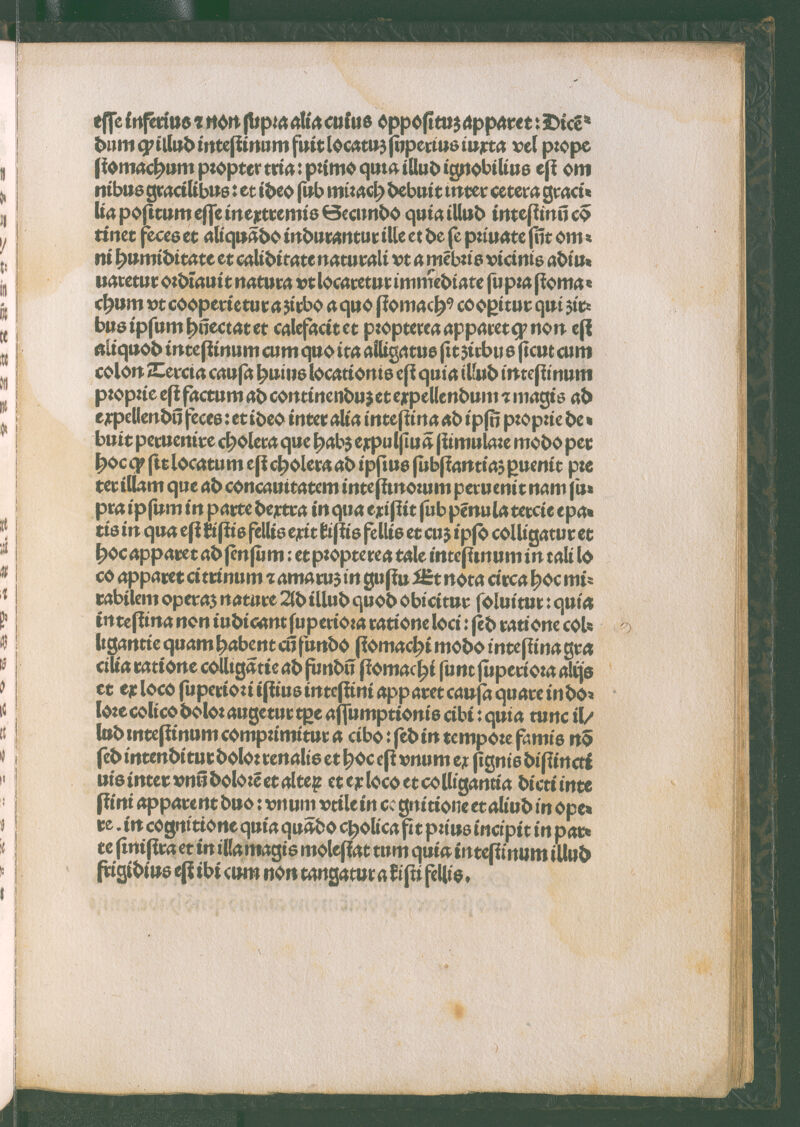 esse inferius ⁊ non supra alia cuius opposituꝫ apparet : Dicē⸗
dum ꝙ illud intestinum fuit locatuꝫ superius iuxta vel prope
stomachum propter tria : primo quia illud ignobilius est om
nibus gracilibus : et ideo sub mirach debuit inter cetera graci⸗
lia positum esse in extremis Secundo quia illud intestinū cō
tinet feces et aliquādo indurantur ille et de se priuate sūt om⸗
ni humiditate et caliditate naturali vt a mēbris vicinis adiu⸗
uaretur ordīauit natura vt locaretur immediate supra stoma⸗
chum vt cooperietur a zirbo a quo stomachꝰ cooꝑitur qui zir⸗
bus ipsum hūectat et calefacit et propterea apparet ꝙ non est
aliquod intestinum cum quo ita alligatus sit zirbus sicut cum
colon Tercia causa huius locationis est quia illud intestinum
proprie est factum ad continenduꝫ et expellendum ⁊ magis ad
expellendū feces : et ideo inter alia intestina ad ipsū proprie de⸗
buit peruenire cholera que habꝫ expulsiuā stimulare modo per
hoc ꝙ sit locatum est cholera ad ipsius substantiaꝫ ꝑuenit pre
ter illam que ad concauitatem intestinorum peruenit nam su⸗
pra ipsum in parte dextra in qua existit sub pēnula tercie epa⸗
tis in qua est kistis fellis exit kistis fellis et cuꝫ ipso colligatur et
hoc apparet ad sensum : et propterea tale intestinum in tali lo
co apparet citrinum ⁊ amaruꝫ in gustu Et nota circa hoc mi⸗
rabilem operaꝫ nature Ad illud quod obicitur soluitur : quia
intestina non iudicant superiora ratione loci : sed ratione col⸗
ligantie quam habent cū fundo stomachi modo intestina gra
cilia ratione colligātie ad fundū stomachi sunt superiora alijs
et ex loco superiori istius intestini apparet causa quare in do⸗
lore colico dolor augetur tꝑe assumptionis cibi : quia tunc il/
lud intestinum comprimitur a cibo : sed in tempore famis nō
sed intenditur dolor renalis et hoc est vnum ex signis distincti
uis inter vnū dolorē et alteꝝ et ex loco et colligantia dicti inte
stini apparent duo : vnum vtile in cognitione et aliud in ope⸗
re . in cognitione quia quādo cholica fit prius incipit in par⸗
te sinistra et in illa magis molestat tum quia intestinum illud
frigidius est ibi cum non tangatur a kisti fellis .